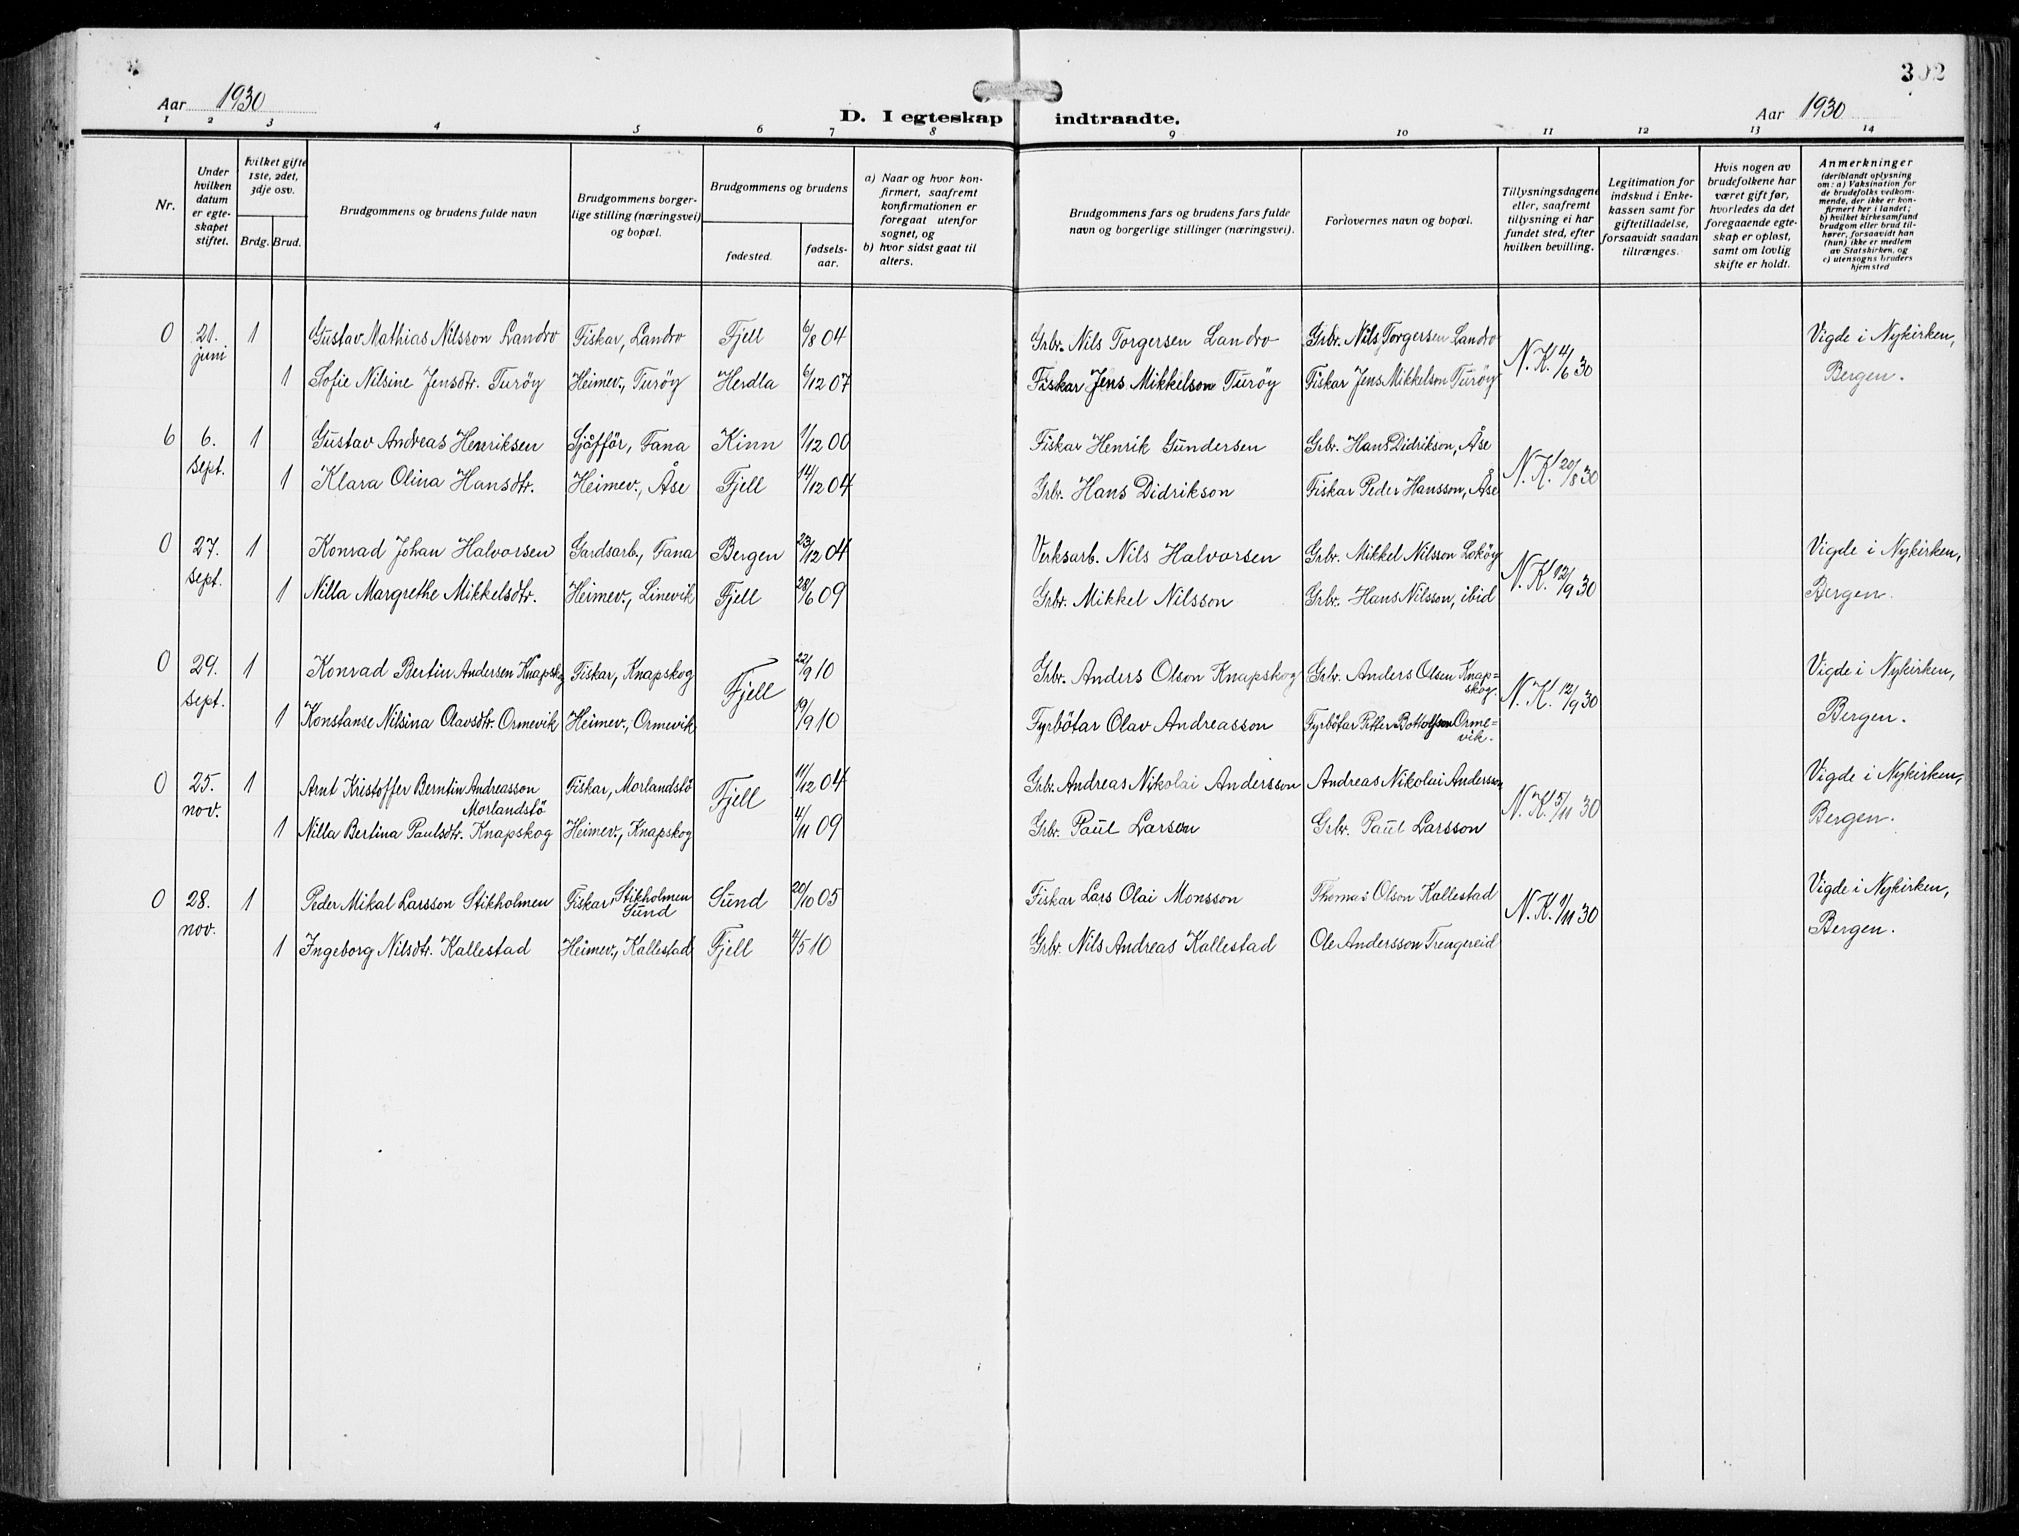 302
Aar 1930
D. I egteskap indtraadte.
Aar 1930
1 2 3 4 5 6 7 8 9 10 11 12 13 14
Nr.
Under hvilken datum er egteskapet stiftet.
Hvilket gifte 1ste, 2det, 3dje osv.
Brdg. Brud.
Brudgommens og brudens fulde navn
Brudgommens borgerlige stilling (næringsvei) og bopæl.
Brudgommens og brudens
fødested.
fødselsaar.
a) Naar og hvor konfirmert, saafremt konfirmationen er foregaat utenfor sognet, og
b) hvor sidst gaat til alters.
Brudgommens fars og brudens fars fulde navn og borgerlige stillinger (næringsvei).
Forlovernes navn og bopæl.
Tillysningsdagene eller, saafremt tillysning ei har fundet sted, efter hvilken bevilling.
Legitimation for indskud i Enkekassen samt for giftetilladelse, forsaavidt saadan tiltrænges.
Hvis nogen av brudefolkene har været gift før, hvorledes da det foregaaende egteskap er opløst, samt om lovlig skifte er holdt.
Anmerkninger (deriblandt oplysning om: a) Vaksination for de brudefolks vedkommende, der ikke er konfirmert her i landet; b) hvilket kirkesamfund brudgom eller brud tilhører, forsaavidt han (hun) ikke er medlem av Statskirken, og c) utensogns bruders hjemsted
0 21. juni 1 Gustav Mathias Nilsson Landro Fiskar, Landro Fjell 6/8 04 Grbr. Nils Torgersen Landro Grbr. Nils Torgersen Landro N. K. 4/6 30 Vigde i Nykirken,
1 Sofie Nilsine Jensdtr. Turöy Heimev., Turöy Herdla 6/12 07 Fiskar Jens Mikkelson Turöy Fiskar Jens Mikkelson Turöy Bergen.
6 6. sept. 1 Gustav Andreas Henriksen Sjåfför, Fana Kinn 1/12 00 Fiskar Henrik Gundersen Grbr. Hans Didrikson, Åse N. K. 20/8 30
1 Klara Olina Hansdtr. Heimev., Åse Fjell 14/12 04 Grbr. Hans Didrikson Fiskar Peder Hansson, Åse
0 27. sept. 1 Konrad Johan Halvorsen Gardsarb., Fana Bergen 23/12 04 Verksarb. Nils Halvorsen Grbr. Mikkel Nilsson Loköy N. K. 12/9 30 Vigde i Nykirken,
1 Nilla Margrethe Mikkelsdtr. Heimev., Linevik Fjell 28/6 09 Grbr. Mikkel Nilsson Grbr. Hans Nilsson, ibid Bergen.
0 29. sept. 1 Konrad Bertin Andersen Knapskog Fiskar, Knapskog Fjell 22/9 10 Grbr. Anders Olson Knapskog Grbr. Anders Olsen Knap=skog. N. K. 12/9 30 Vigde i Nykirken,
1 Konstanse Nilsina Olavsdtr. Ormevik Heimev., Ormevik 19/9 10 Fyrbötar Olav Andreasson Fyrbötar Petter Bottolfson Orme=vik. Bergen.
0 25. nov. 1 Arnt Kristoffer Berntin Andreasson Morlandstö Fiskar, Morlandstö Fjell 11/12 04 Grbr. Andreas Nikolai Andersson Andreas Nikolai Andersson N. K. 5/11 30 Vigde i Nykirken,
1 Nilla Bertina Paulsdtr. Knapskog Heimev., Knapskog 4/11 09 Grbr. Paul Larsen Grbr. Paul Larsson Bergen.
0 28. nov. 1 Peder Mikal Larsson Stikholmen Fiskar, Stikholmen Sund Sund 20/10 05 Fiskar Lars Olai Monsson Thomas Olson Kallestad N. K. 1/11 30 Vigde i Nykirken,
1 Ingeborg Nilsdtr. Kallestad Heimev., Kallestad Fjell 4/5 10 Grbr. Nils Andreas Kallestad Ole Andersson Trengereid Bergen.